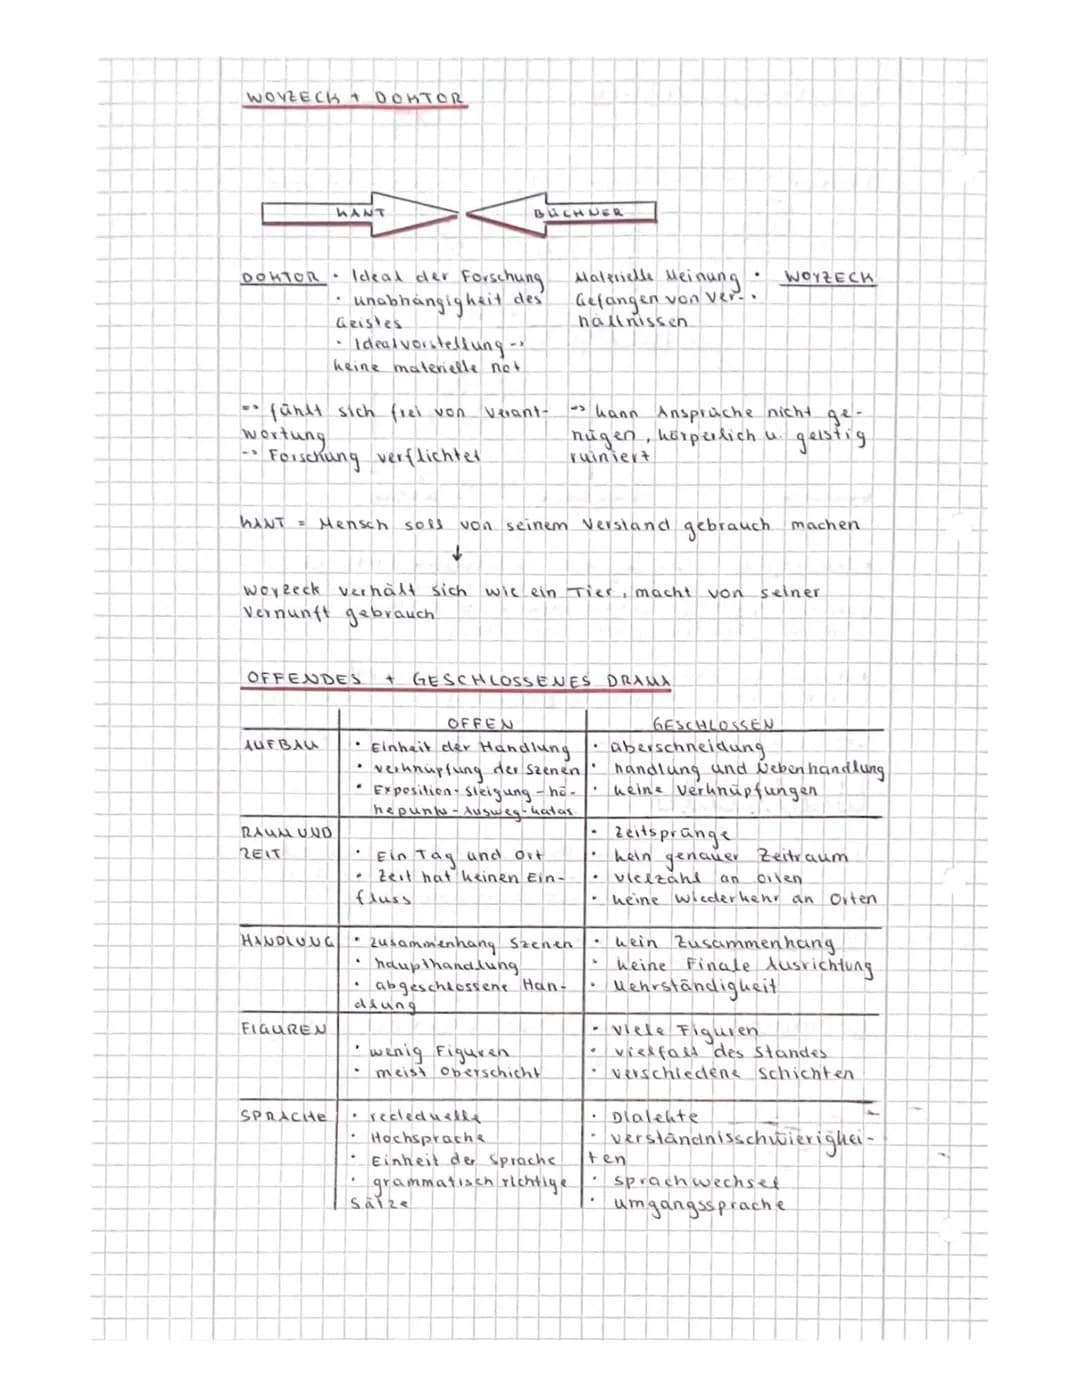 WOYZECK + DOKTOR
KANT
BÜCHNER
DOKTOR • Ideal der Forschung
• unabhängigkeit des
Geistes
• Idealvorstellung ->
keine materielle not
Materielle Meinung • WOYZECK
Gefangen von Ver- •
hältnissen
=> fühlt sich frei von Verant-
wortung
-> Forschung verflichtet
-> kann Ansprüche nicht ge-
nügen, körperlich u. geistig
ruiniert
KANT = Mensch soll von seinem Verstand gebrauch machen
↓
Woyzeck verhält sich wie ein Tier, macht von seiner
Vernunft gebrauch
OFFENDES + GESCHLOSSENES DRAMA
OFFEN GESCHLOSSEN
AUFBAU
• Einheit der Handlung
• verknüpfung der Szenen
• Exposition - Steigung - hö-
hepunkt - Ausweg - katas.
• überschneidung
• handlung und Nebenhandlung
• keine Verknüpfungen
RAUM UND
ZEIT
• Ein Tag und Ort
• Zeit hat keinen Ein-
fluss
• Zeitsprünge
• kein genauer Zeitraum
• vielzahl an Orten
• keine Wiederkehr an Orten
HANDLUNG
• zusammenhang Szenen
• haupthandlung
• abgeschlossene Han-
dlung
• kein Zusammenhang
• keine Finale Ausrichtung
• Mehrständigkeit
FIGUREN
• wenig Figuren
• meist Oberschicht
• viele Figuren
• vielfalt des Standes
• verschiedene Schichten
SPRACHE
• Hochsprache
• Einheit der Sprache
• grammatisch richtige
Sätze
• Dialekte
• verständnisschwierigkei-
ten
• sprachwechsel
• umgangssprache